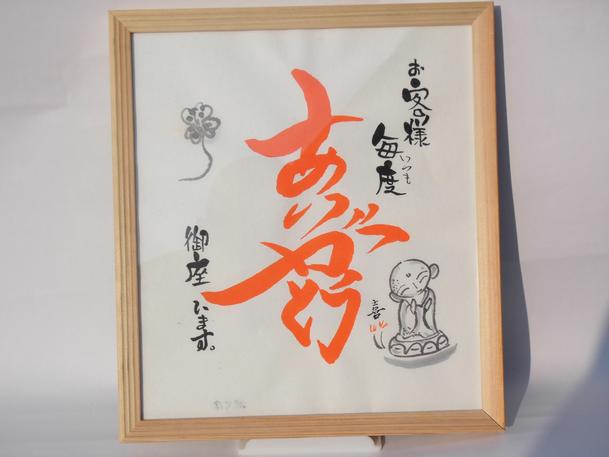 お客様
毎度
いつも
ありがとう
御座います。